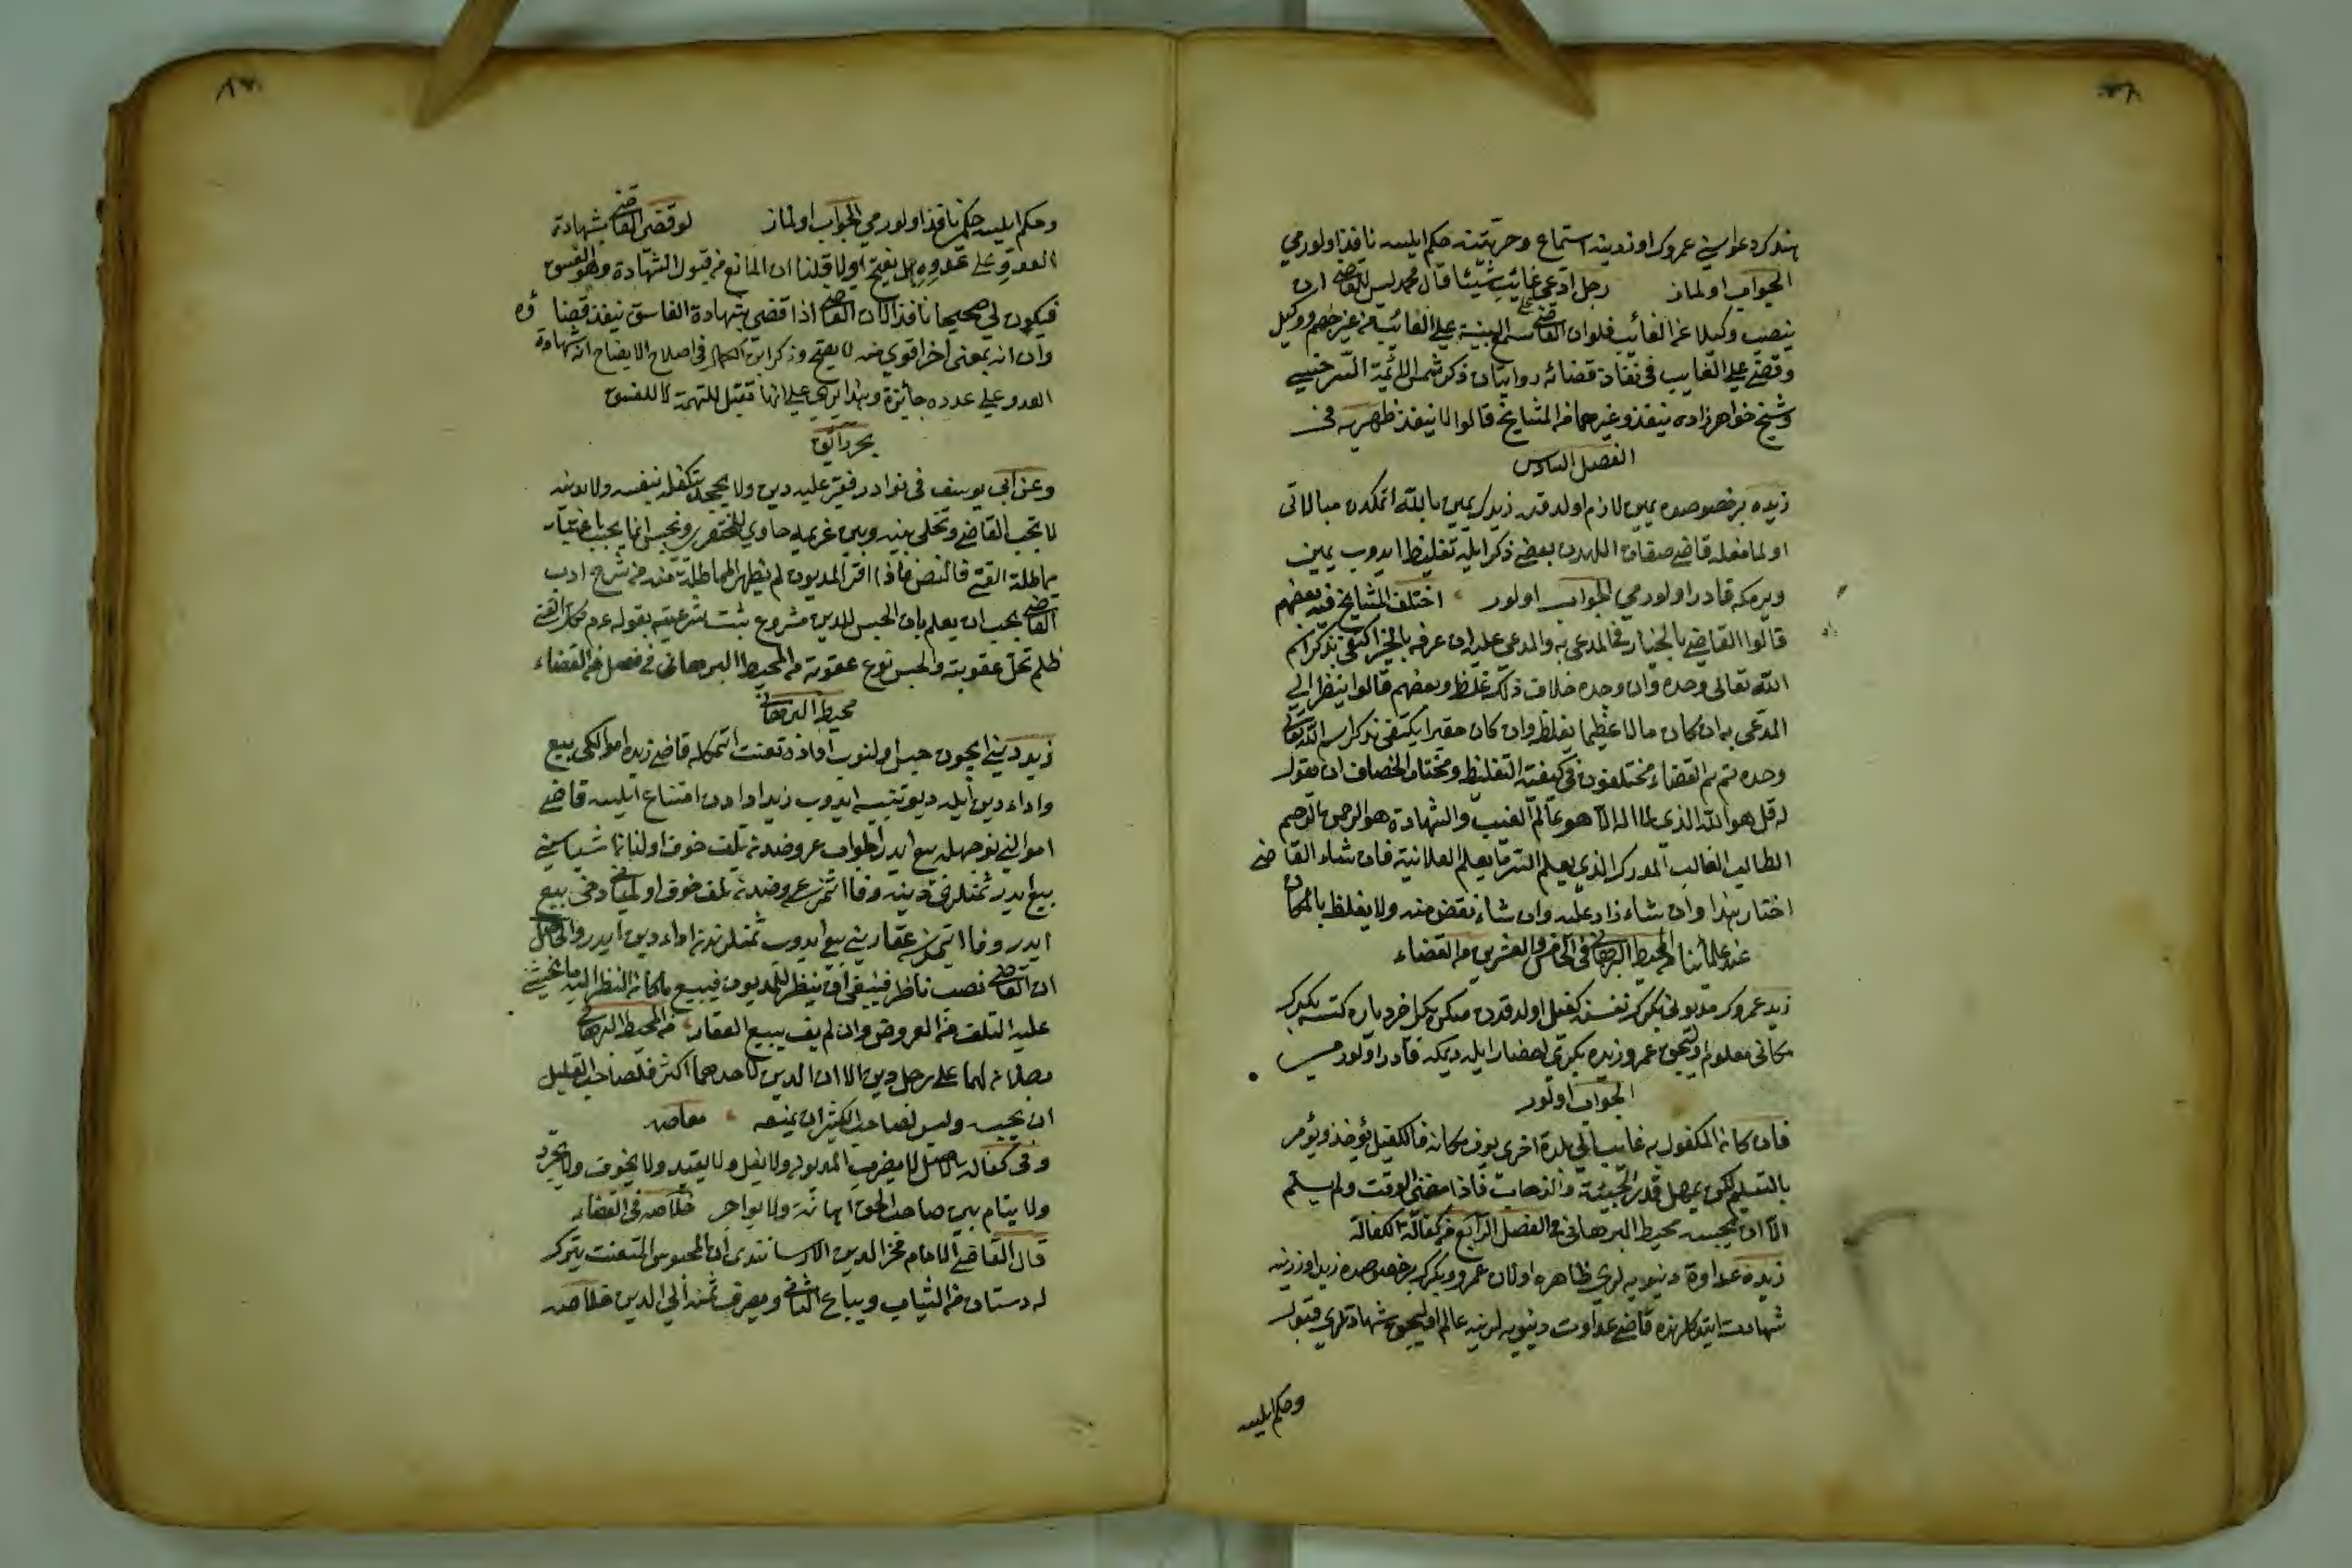 هندكرد دعواسنى عمروك اوزرينه استماع وحريتنه حكم ايلسه نافذ اولورمى
الجواب اولماز رجل ادعى غائب شيئا قال محمد ليس للقاضى ان
ينصب وكيلا عن الغائب فلو ان القاضى سمع البينة على الغائب من غير خصم ووكيل
وقضى على الغايب فى نفاذ قضائه روايتان ذكر شمس الائمة السرخسى
وشيخ خواهرزاده ينفذ وغيرهما من المشايخ قالوا لا ينفذ ظهيريه فى
الفصل السادس
زيده بر خصوصده يمين لازم اولدقده زيد يمين بالله اتمكدن مبالاتى
اولمامغله قاضى صفات اللهدن بعضى ذكر ايله تغليظ ايدوب يمين
ويرمكه قادر اولورمى الجواب اولور اختلف المشايخ فيه بعضهم
قالوا القاضى بالخيار فى المدعى به والمدعى عليه ان عرفه بالخير اكتفى بذكر اسم
الله تعالى وحده وان وجده خلاف ذلك غلظ وبعضهم قالوا ينظر الى
المدعى به ان كان مالا عظيما يغلظ وان كان حقيرا يكتفى بذكر اسم الله تعالى
وحده ثم القضاء مختلفون فى كيفية التغليظ ومختار الخصاف ان يقول
له قل هو الله الذى لا اله الا هو عالم الغيب والشهادة هو الرحمن الرحيم
الطالب الغالب المدرك الذى يعلم السر ما يعلم العلانية فان شاء القاضى
اختار بهذا وان شاء زاد عليه وان شاء نقص منه ولا يغلظ بالمكان
عند علمائنا المحيط البرهانى فى الخامس والعشرين من القضاء
زيد عمروك مديونى بكرك نفسنه كفيل اولدقدن صكره بكر اخر دياره كتسه بكرك
مكانى معلوم اوليجق عمرو زيده بكرى احضار ايله ديمكه قادر اولورمى
الجواب اولور
فان كان المكفول به غائبا فى بلدة اخرى يوف مكانه فالكفيل يؤخذ ويؤمر
بالتسليم لكن يمهل قدر الجيئة والذهاب فاذا مضى الوقت ولم يسلم
الا ان يحبسه محيط البرهانى فى الفصل الرابع من كفالة الكفالة
زيده عداوة دنيويه لرى ظاهره اولان عمرو وبكر بر خصوصده زيد اوزرينه
شهادت ايتدكلرنده قاضى عداوت دنيويه لرينه عالم اوليجق شهادتلرى قبول
وحكم ايلسه
وحكم ايلسه حكمى نافذ اولورمى الجواب اولماز لو قضى القاضى بشهادة
العدو على عدوه هل يصح اولا قلنا ان المانع من قبول الشهادة وهو الفسق
فيكون لى صحيحا نافذا لان القاضى اذا قضى بشهادة الفاسق ينفذ قضاؤه
وان انه بمعنى اخر اقوى منه لا يصح وذكر ابن الكمال فى اصلاح الايضاح ان شهادة
العدو على عدوه جائزة وبهذا يرى على انها تقبل للتهمة لا للفسق
بحر رائق
وعن ابى يوسف فى نوادر فقير عليه دين ولا يجحد تكفله بنفسه ولا بدينه
لا يحبسه القاضى ويخلى بينه وبين غريمه حاوى للمختصرى ونحبس انما يجب باعتبار
مماطلة الغنى قال النص فاذا اقر المديون لم يظهر المماطلة منه من شرح ادب
القاضى يجب ان يعلم بان الحبس للدين مشروع ثبت شرعيته بقوله عم مطل الغنى
ظلم تحل عقوبته والحبس نوع عقوبة من المحيط البرهانى فى فصل من القضاء
محيط البرهانى
زيد دينى ايچون حبس اولنوب اداده تعنت اتمكله قاضى زيده اموالكى بيع
واداء دين ايله ديو تنبيه ايدوب زيد ادادن امتناع ايلسه قاضى
اموالنى نه وجهله بيع ايدر الجواب عروضدن تلف خوف اولنان اشياسنى
بيع ايدر ثمنلرى دينه وفا اتمزسه عروضدن تلف خوف اولنميانى دخى بيع
ايدر وفا اتمزسه عقارينى بيع ايدوب ثمنلرندن اداء دين ايدر والحاصل
ان القاضى نصب ناظر فينبغى ان ينظر للمديون فيبيع ما كان النظر اليه ما يخشى
عليه التلف من العروض وان لم يف يبيع العقار من المحيط البرهانى
رجلان لهما على رجل دين الا ان الدين لاحدهما اكثر فلصاحب القليل
ان يحبسه وليس لصاحب الكثير ان يمنعه معاصه
وفى كفالة الاصل لا يضرب المديون ولا يغل ولا يقيد ولا يخوف ولا يجرد
ولا يقام بين صاحب الحق اهانة ولا يواجر خلاصه فى القضاء
قال القاضى الامام فخر الدين الارسابندى ان المحبوس المتعنت يترك
له دستان من الثياب ويباع الباقى ويصرف ثمنه الى الدين خلاصه